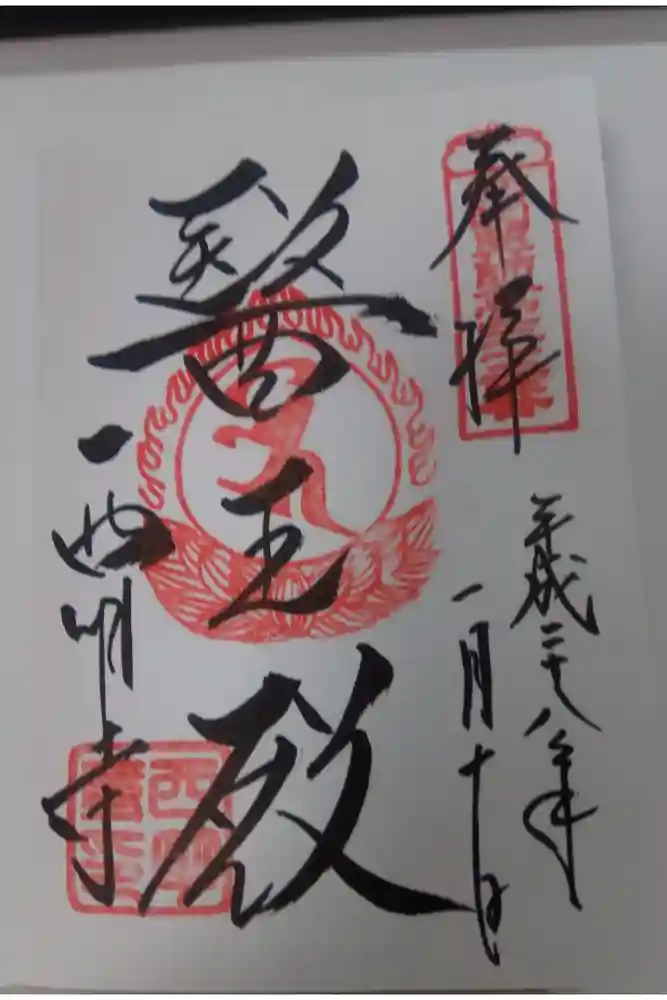 奉拝
平成二十八年
一月十日
醫王殿
西明寺